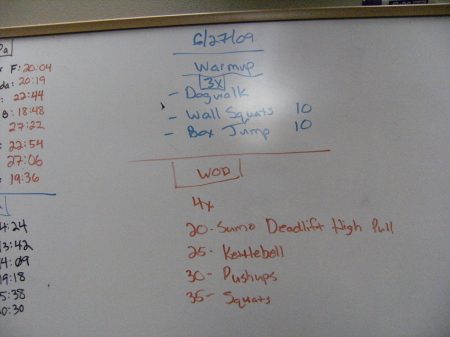 pa
F: 20:04
da: 20:19
: 22:44
B: 18:48
27:22
: 22:54
27:06
: 19:36
4:24
13:42
4:09
9:18
5:38
0:30
6/27/09
Warmup
3x
- Dogwalk
- Wall Squats 10
- Box Jump 10
WOD
4x
20- Sumo Deadlift High Pull
25- Kettlebell
30- Pushups
35- Squats